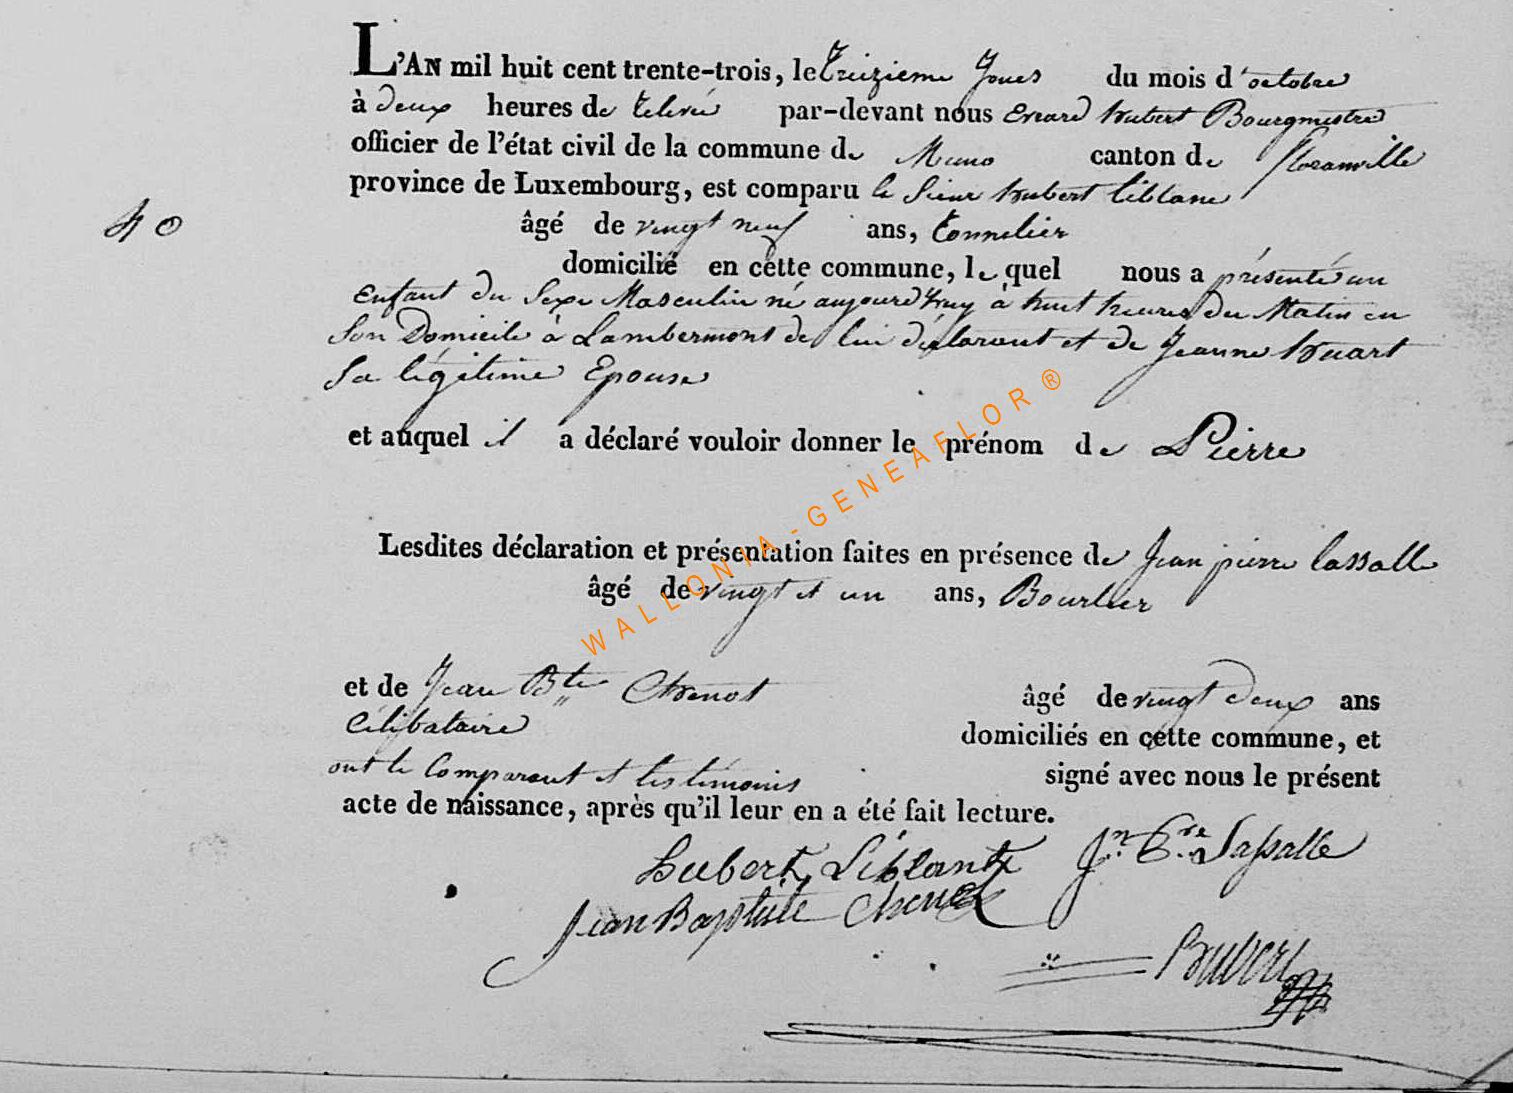 L'AN mil huit cent trente-trois, le treizieme Jour du mois d'octobre
à deux heures de relevé par-devant nous Evrard hubert Bourgmestre
officier de l'état civil de la commune de Muno canton de florenville
province de Luxembourg, est comparu le Sieur hubert liblanc
40
âgé de vingt neuf ans, tonnelier
domicilié en cette commune, lequel nous a présenté un
enfant du Sexe Masculin né aujourd'huy à huit heures du Matin en
Son Domicile à Lambermont de lui déclarant et de Jeanne huart
Sa légitime Epouse
et auquel il a déclaré vouloir donner le prénom de Pierre
Lesdites déclaration et présentation faites en présence de Jean pierre lassalle
âgé de vingt et un ans,
et de Jean Bte Chenot âgé de vingt deux ans
Célibataire domiciliés en cette commune, et
ont le Comparant et les témoins signé avec nous le présent
acte de naissance, après qu'il leur en a été fait lecture.
hubert Jn Pre Lassalle
Jean Baptiste Chenot
WALLONIA-GENEAFLOR®